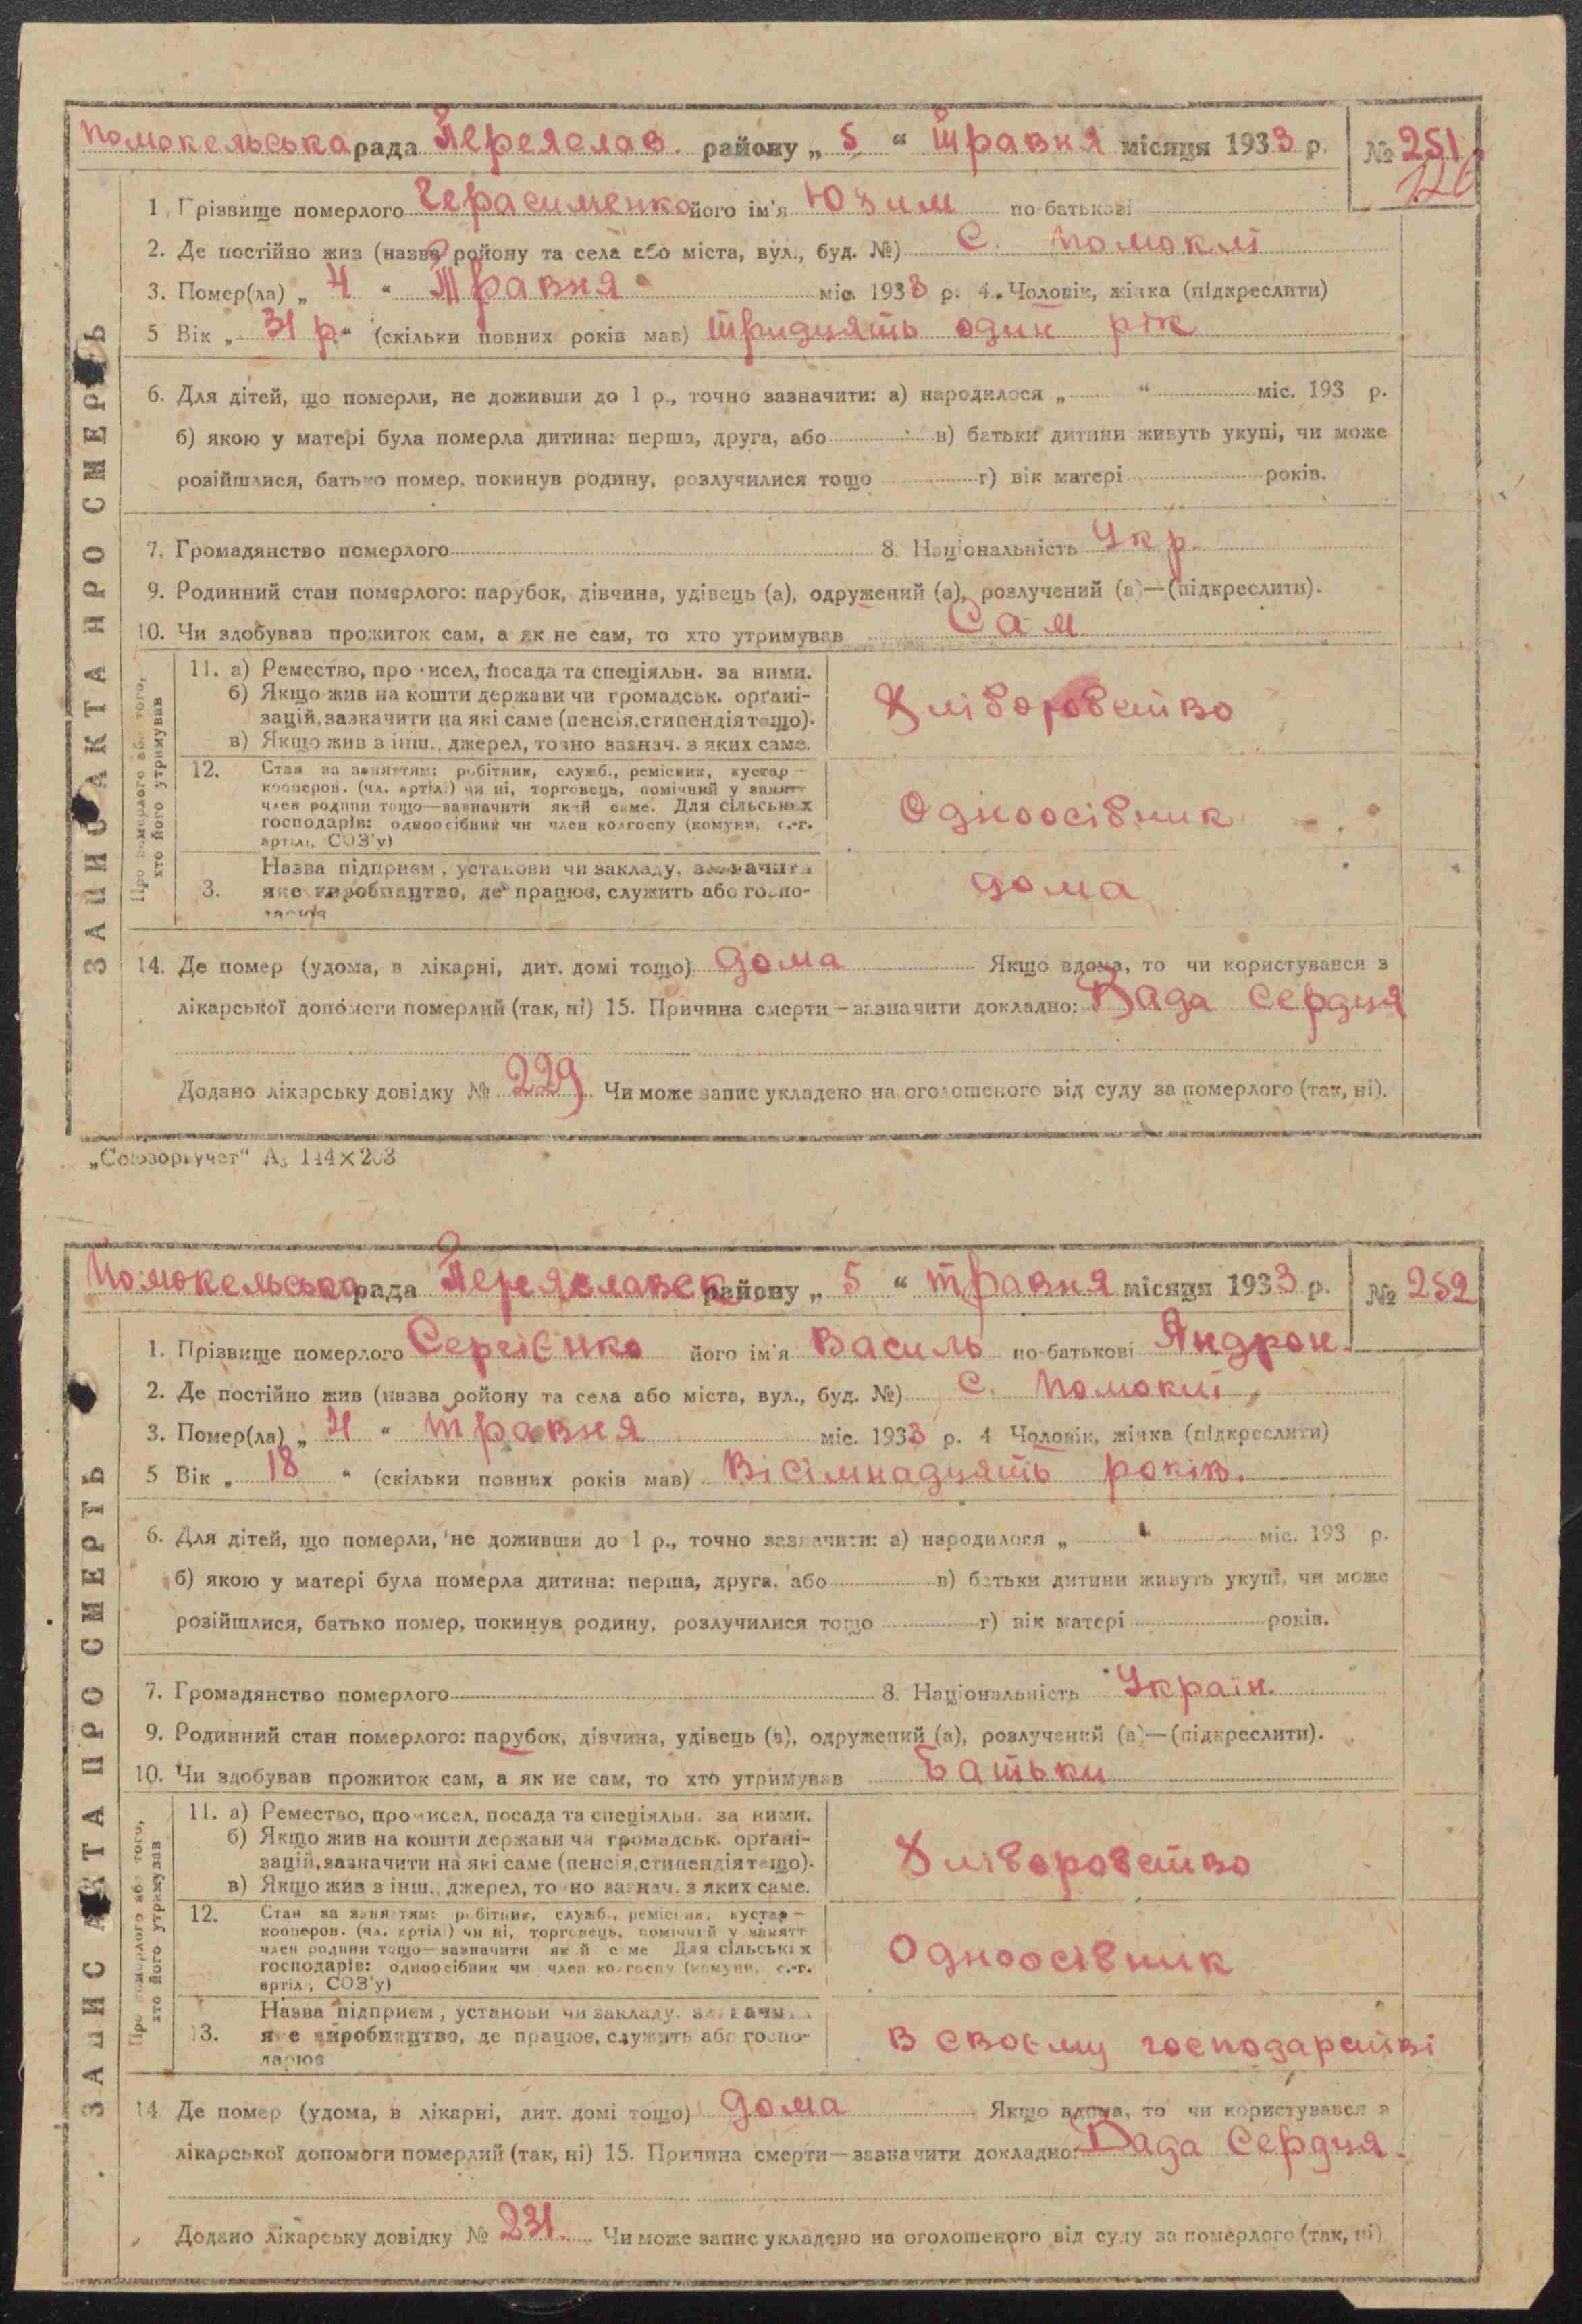 Помокельська рада Переяслав. району „ 5 “ травня місяця 1933 р. № 251
126
1. Прізвище померлого Герасименко його ім'я Юхим по-батькові
2. Де постійно жив (назва ройону та села або міста, вул., буд. №) С. Помоклі
3. Помер(ла) „ 4 “ Травня міс. 1933 р. 4. Чоловік, жінка (підкреслити)
5 Вік „ 31 р “ (скільки повних років мав) тридцять один рік
6. Для дітей, що померли, не доживши до 1 р., точно зазначити: а) народилося „ “ міс. 193 р.
б) якою у матері була померла дитина: перша, друга, або в) батьки дитини живуть укупі, чи може
розійшлися, батько помер, покинув родину, розлучилися тощо г) вік матері років.
7. Громадянство померлого 8. Національність Укр.
9. Родинний стан померлого: парубок, дівчина, удівець (а), одружений (а), розлучений (а)—(підкреслити).
10. Чи здобував прожиток сам, а як не сам, то хто утримував Сам
ЗАПИС АКТА ПРО СМЕРТЬ
Про померлого або того,
хто його утримував
11. а) Ремество, про исел, посада та спеціяльн. за ними.
б) Якщо жив на кошти держави чи громадськ. органі-
зацій, зазначити на які саме (пенсія, стипендія тощо).
в) Якщо жив з інш., джерел, точно зазнач. з яких саме.
Хліборобство
12. Стан за заняттям: робітник, служб., ремісник, кустар-
кооперов. (чл. артілі) чи ні, торговець, помічний у занятт
член родини тощо—зазначити який саме. Для сільських
господарів: одноосібник чи член колгоспу (комуни, с.-г.
артілі, СОЗ'у)
Одноосібник
3. Назва підприєм., установи чи закладу, зазначити
яке виробництво, де працює, служить або госпо-
дарює
дома
14. Де помер (удома, в лікарні, дит. домі тощо) дома Якщо вдома, то чи користувався з
лікарської допомоги померлий (так, ні) 15. Причина смерти—зазначити докладно: Вада Серця
Додано лікарську довідку № 229 Чи може запис укладено на оголошеного від суду за померлого (так, ні).
„Союзоргучет“ А5 144×203
Помокельська рада Переяславск району „ 5 “ травня місяця 1933 р. № 252
1. Прізвище померлого Сергієнко його ім'я Василь по-батькові Андрон.
2. Де постійно жив (назва ройону та села або міста, вул., буд. №) С. Помоклі
3. Помер(ла) „ 4 “ травня міс. 1933 р. 4 Чоловік, жінка (підкреслити)
5 Вік „ 18 “ (скільки повних років мав) Вісімнадцять років.
6. Для дітей, що померли, не доживши до 1 р., точно зазначити: а) народилося „ “ міс. 193 р.
б) якою у матері була померла дитина: перша, друга, або в) батьки дитини живуть укупі, чи може
розійшлися, батько помер, покинув родину, розлучилися тощо г) вік матері років.
7. Громадянство померлого 8. Національність Україн.
9. Родинний стан померлого: парубок, дівчина, удівець (а), одружений (а), розлучений (а)—(підкреслити).
10. Чи здобував прожиток сам, а як не сам, то хто утримував Батьки
ЗАПИС АКТА ПРО СМЕРТЬ
Про померлого або того,
хто його утримував
11. а) Ремество, промисел, посада та спеціяльн. за ними.
б) Якщо жив на кошти держави чи громадськ. органі-
зацій, зазначити на які саме (пенсія, стипендія тощо).
в) Якщо жив з інш., джерел, точно зазнач. з яких саме.
Хліборобство
12. Стан за заняттям: робітник, служб., ремісник, кустар-
кооперов. (чл. артілі) чи ні, торговець, помічний у занятт
член родини тощо—зазначити який саме Для сільських
господарів: одноосібник чи член колгоспу (комуни, с.-г.
артілі, СОЗ'у)
Одноосібник
13. Назва підприєм., установи чи закладу, зазначити
яке виробництво, де працює, служить або госпо-
дарює
В своєму господарстві
14 Де помер (удома, в лікарні, дит. домі тощо) дома Якщо вдома, то чи користувався з
лікарської допомоги померлий (так, ні) 15. Причина смерти—зазначити докладно: Вада Серця.
Додано лікарську довідку № 231. Чи може запис укладено на оголошеного від суду за померлого (так, ні)